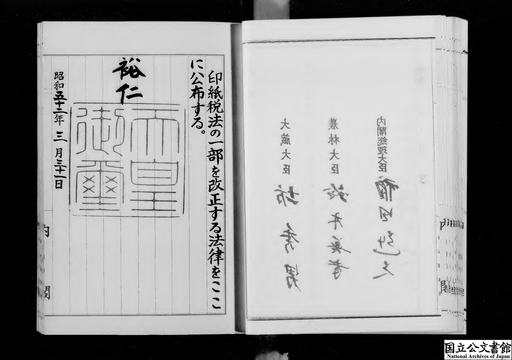 内閣総理大臣 福田赳夫
農林大臣 鈴木善幸
大蔵大臣 坊秀男
印紙税法の一部を改正する法律をここ
に公布する。
裕仁
天皇
御璽
昭和五十二年三月三十一日
内閣
国立公文書館
National Archives of Japan